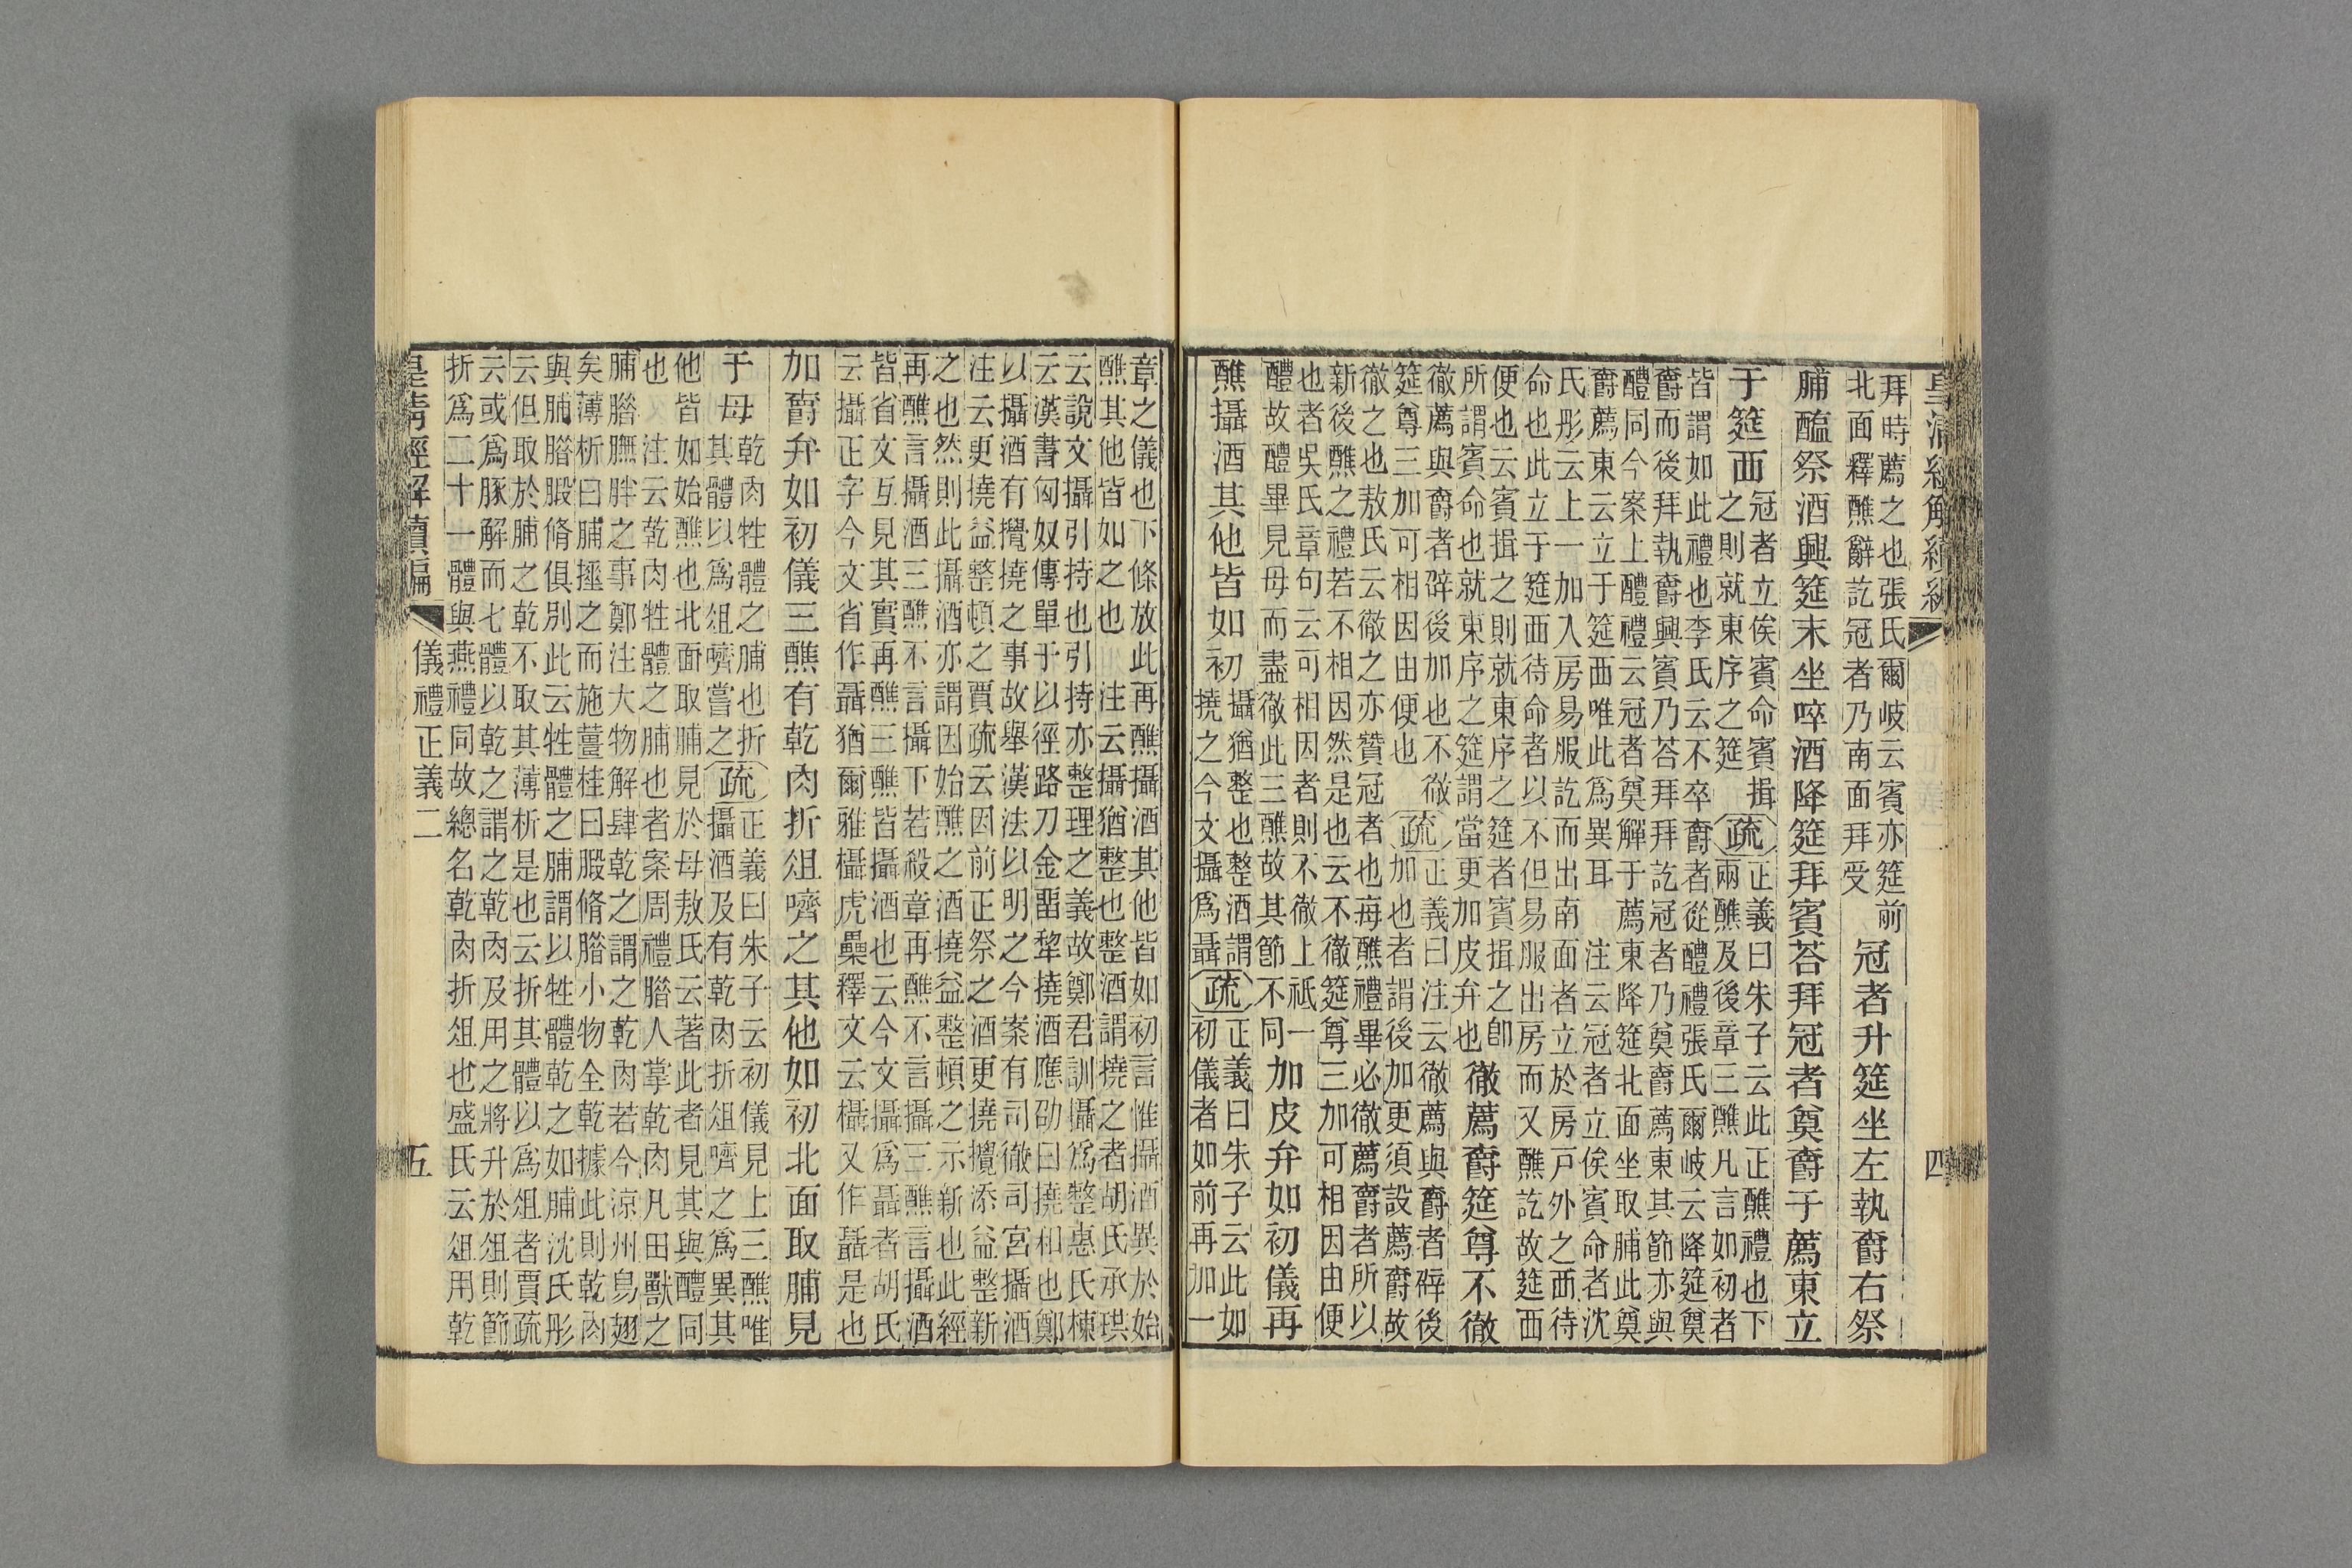 皇清經解續編 四
拜時薦之也張氏爾岐云賓亦筵前
北面釋醮辭訖冠者乃南面拜受
冠者升筵坐左執爵右祭
脯醢祭酒興筵末坐啐酒降筵拜賓荅拜冠者奠爵于薦東立
于筵西
冠者立俟賓命賓揖
之則就東序之筵
疏
正義曰朱子云此正醮禮也下
兩醮及後章三醮凡言如初者
皆謂如此禮也李氏云不卒爵者從醴禮張氏爾岐云降筵奠
爵而後拜執爵興賓乃荅拜拜訖冠者乃奠爵薦東其節亦與
醴同今案上醴禮云冠者奠觶于薦東降筵北面坐取脯此奠
爵薦東云立于筵西唯此爲異耳 注云冠者立俟賓命者沈
氏彤云上一加入房易服訖而出南面者立於房戶外之西待
命也此立于筵西待命者以不但易服出房而又醮訖故筵西
便也云賓揖之則就東序之筵者賓揖之卽
所謂賓命也就東序之筵謂當更加皮弁也
徹薦爵筵尊不徹
徹薦與爵者辟後加也不徹
筵尊三加可相因由便也
疏
正義曰注云徹薦與爵者辟後
加也者謂後加更須設薦爵故
徹之也敖氏云徹之亦贊冠者也每醮禮畢必徹薦爵者所以
新後醮之禮若不相因然是也云不徹筵尊三加可相因由便
也者吳氏章句云可相因者則不徹上祇一
醴故醴畢見母而盡徹此三醮故其節不同
加皮弁如初儀再
醮攝酒其他皆如初
攝猶整也整酒謂
撓之今文攝爲聶
疏
正義曰朱子云此如
初儀者如前再加一
章之儀也下條放此再醮攝酒其他皆如初言惟攝酒異於始
醮其他皆如之也 注云攝猶整也整酒謂撓之者胡氏承珙
云說文攝引持也引持亦整理之義故鄭君訓攝爲整惠氏棟
云漢書匈奴傳單于以徑路刀金畱犂撓酒應劭曰撓和也鄭
以攝酒有攪撓之事故舉漢法以明之今案有司徹司宮攝酒
注云更撓益整頓之賈疏云因前正祭之酒更撓攪添益整新
之也然則此攝酒亦謂因始醮之酒撓益整頓之示新也此經
再醮言攝酒三醮不言攝下若殺章再醮不言攝三醮言攝酒
皆省文互見其實再醮三醮皆攝酒也云今文攝爲聶者胡氏
云攝正字今文省作聶猶爾雅欇虎櫐釋文云欇又作聶是也
加爵弁如初儀三醮有乾肉折俎嚌之其他如初北面取脯見
于母
乾肉牲體之脯也折
其體以爲俎嚌嘗之
疏
正義曰朱子云初儀見上三醮唯
攝酒及有乾肉折俎嚌之爲異其
他皆如始醮也北面取脯見於母敖氏云著此者見其與醴同
也 注云乾肉牲體之脯也者案周禮腊人掌乾肉凡田獸之
脯腊膴胖之事鄭注大物解肆乾之謂之乾肉若今涼州烏翅
矣薄析曰脯捶之而施薑桂曰腶脩腊小物全乾據此則乾肉
與脯腊腶脩俱別此云牲體之脯謂以牲體乾之如脯沈氏彤
云但取於脯之乾不取其薄析是也云折其體以爲俎者賈疏
云或爲豚解而七體以乾之謂之乾肉及用之將升於俎則節
折爲二十一體與燕禮同故總名乾肉折俎也盛氏云俎用乾
皇清經解續編 儀禮正義二 五